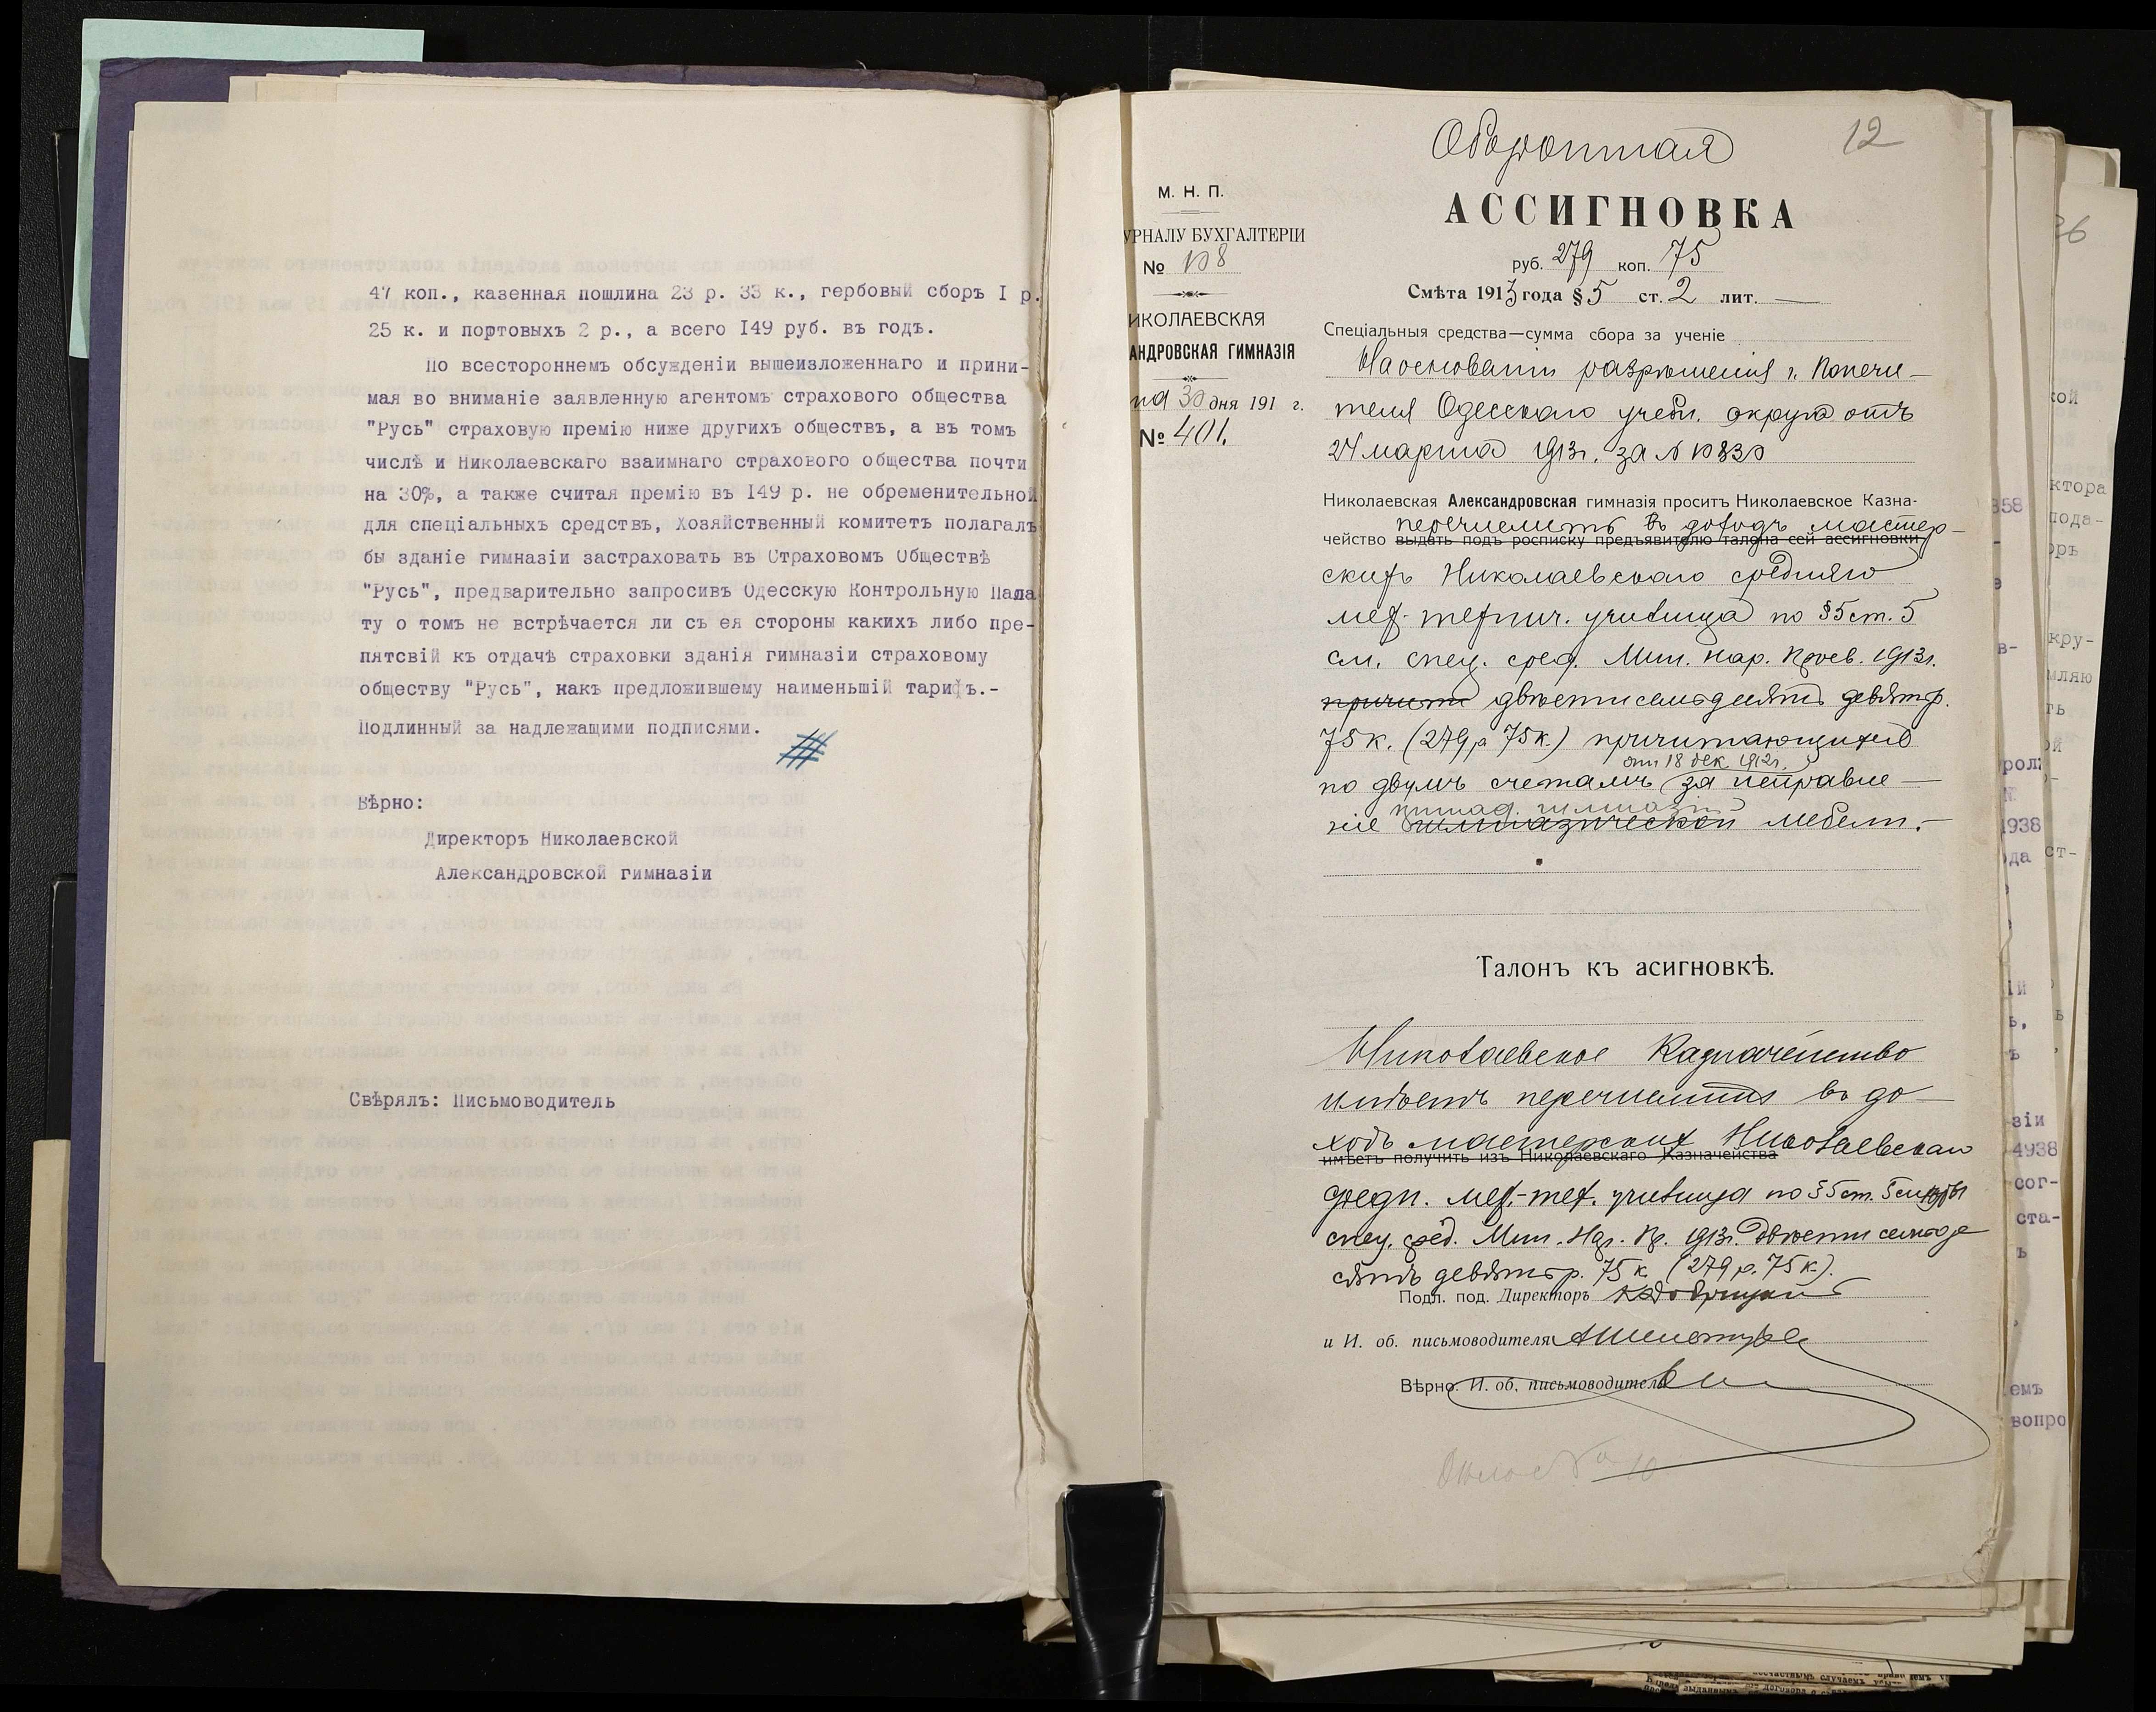 47 коп., казенная пошлина 23 р. 33 к., гербовый сборъ I р.
25 к. и портовыхъ 2 р., а всего I49 руб. въ годъ.
По всестороннемъ обсужденіи вышеизложеннаго и прини-
мая во вниманіе заявленную агентомъ страхового общества
"Русь" страховую премію ниже другихъ обществъ, а въ томъ
числѣ и Николаевскаго взаимнаго страхового общества почти
на 30%, а также считая премію въ I49 р. не обременительной
для спеціальныхъ средствъ, Хозяйственный комитетъ полагалъ
бы зданіе гимназіи застраховать въ Страховомъ Обществѣ
"Русь", предварительно запросивъ Одесскую Контрольную Пала
ту о томъ не встрѣчается ли съ ея стороны какихъ либо пре-
пятсвій къ отдачѣ страховки зданія гимназіи страховому
обществу "Русь", какъ предложившему наименьшій тарифъ.-
Подлинный за надлежащими подписями.
Вѣрно:
Директоръ Николаевской
Александровской гимназіи
Свѣрялъ: Письмоводитель
12
Оборотная
М. Н. П.
УРНАЛУ БУХГАЛТЕРІИ
№ 108
ИКОЛАЕВСКАЯ
АНДРОВСКАЯ ГИМНАЗІЯ
30 дня 191 г.
№ 401.
АССИГНОВКА
руб. 279 коп. 75
Смѣта 1913 года § 5 ст. 2 лит. —
Спеціальныя средства—сумма сбора за ученіе
На основаніи разрѣшенія г. Попечи-
теля Одесскаго учебн. округа отъ
27 марта 1913г. за № 10830
Николаевская Александровская гимназія проситъ Николаевское Казна-
перечислить въ доходъ мастер-
чейство выдать подъ росписку предъявителю талона сей ассигновки
скихъ Николаевскаго средняго
мех.-технич. училища по § 5 ст. 5
см. спец. сред. Мин. Нар. Просв. 1913г.
двѣсти семьдесятъ девять р.
75 к. (279 р. 75 к.) причитающихся
отъ 18 дек. 1912г.
по двумъ счетамъ за исправле-
принад. гимназіи
ніе гимназической мебели.-
Талонъ къ асигновкѣ.
Николаевское Казначейство
имѣетъ перечислить въ до-
ходъ мастерскихъ Николаевскаго
имѣетъ получить изъ Николаевскаго Казначейства
средн. мех.-тех. училища по § 5 ст. 5 смѣты
спец. сред. Мин. Нар. Пр. 1913г. Двѣсти семьде
сятъ девять р. 75 к. (279 р. 75 к.).
Подл. под. Директоръ
и И. об. письмоводителя
Вѣрно: И. об. письмоводителя